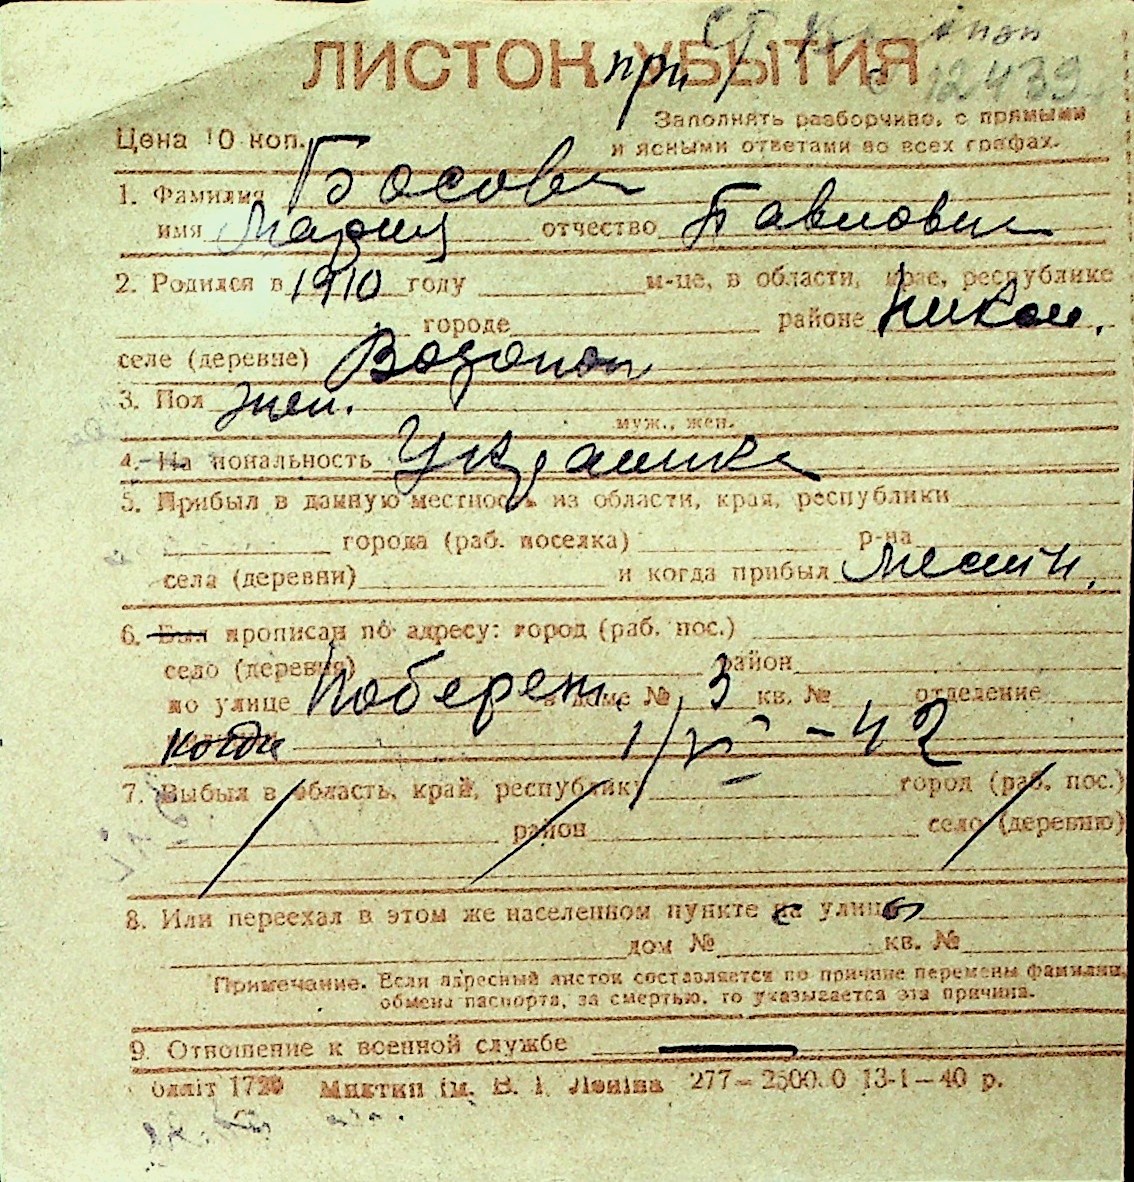 ЛИСТОК УБЫТИЯ
при
12439
Заполнять разборчиво, с прямыми
Цена 10 коп.
и ясными ответами во всех графах.
1. Фамилия Басова
имя Мария отчество Павловна
2. Родился в 1910 году м-це, в области, крае, республике
городе районе Никол.
селе (деревне) Водопой
3. Пол жен.
муж., жен.
4. Национальность Украинка
5. Прибыл в данную местность из области, края, республики
города (раб. поселка) р-на
села (деревни) и когда прибыл местн.
6. Был прописан по адресу: город (раб. пос.)
село (деревня) район
по улице Побереж. в доме № 3 кв. № отделение
когда 1/VI - 42
7. Выбыл в область, край, республику город (раб. пос.)
район село (деревню)
8. Или переехал в этом же населенном пункте с улицы
дом № кв. №
Примечание. Если адресный листок составляется по причине перемены фамилии,
обмена паспорта, за смертью, то указывается эта причина.
9. Отношение к военной службе
Облліт 1720 Миктип ім. В. І. Леніна 277—25000 13-1—40 р.